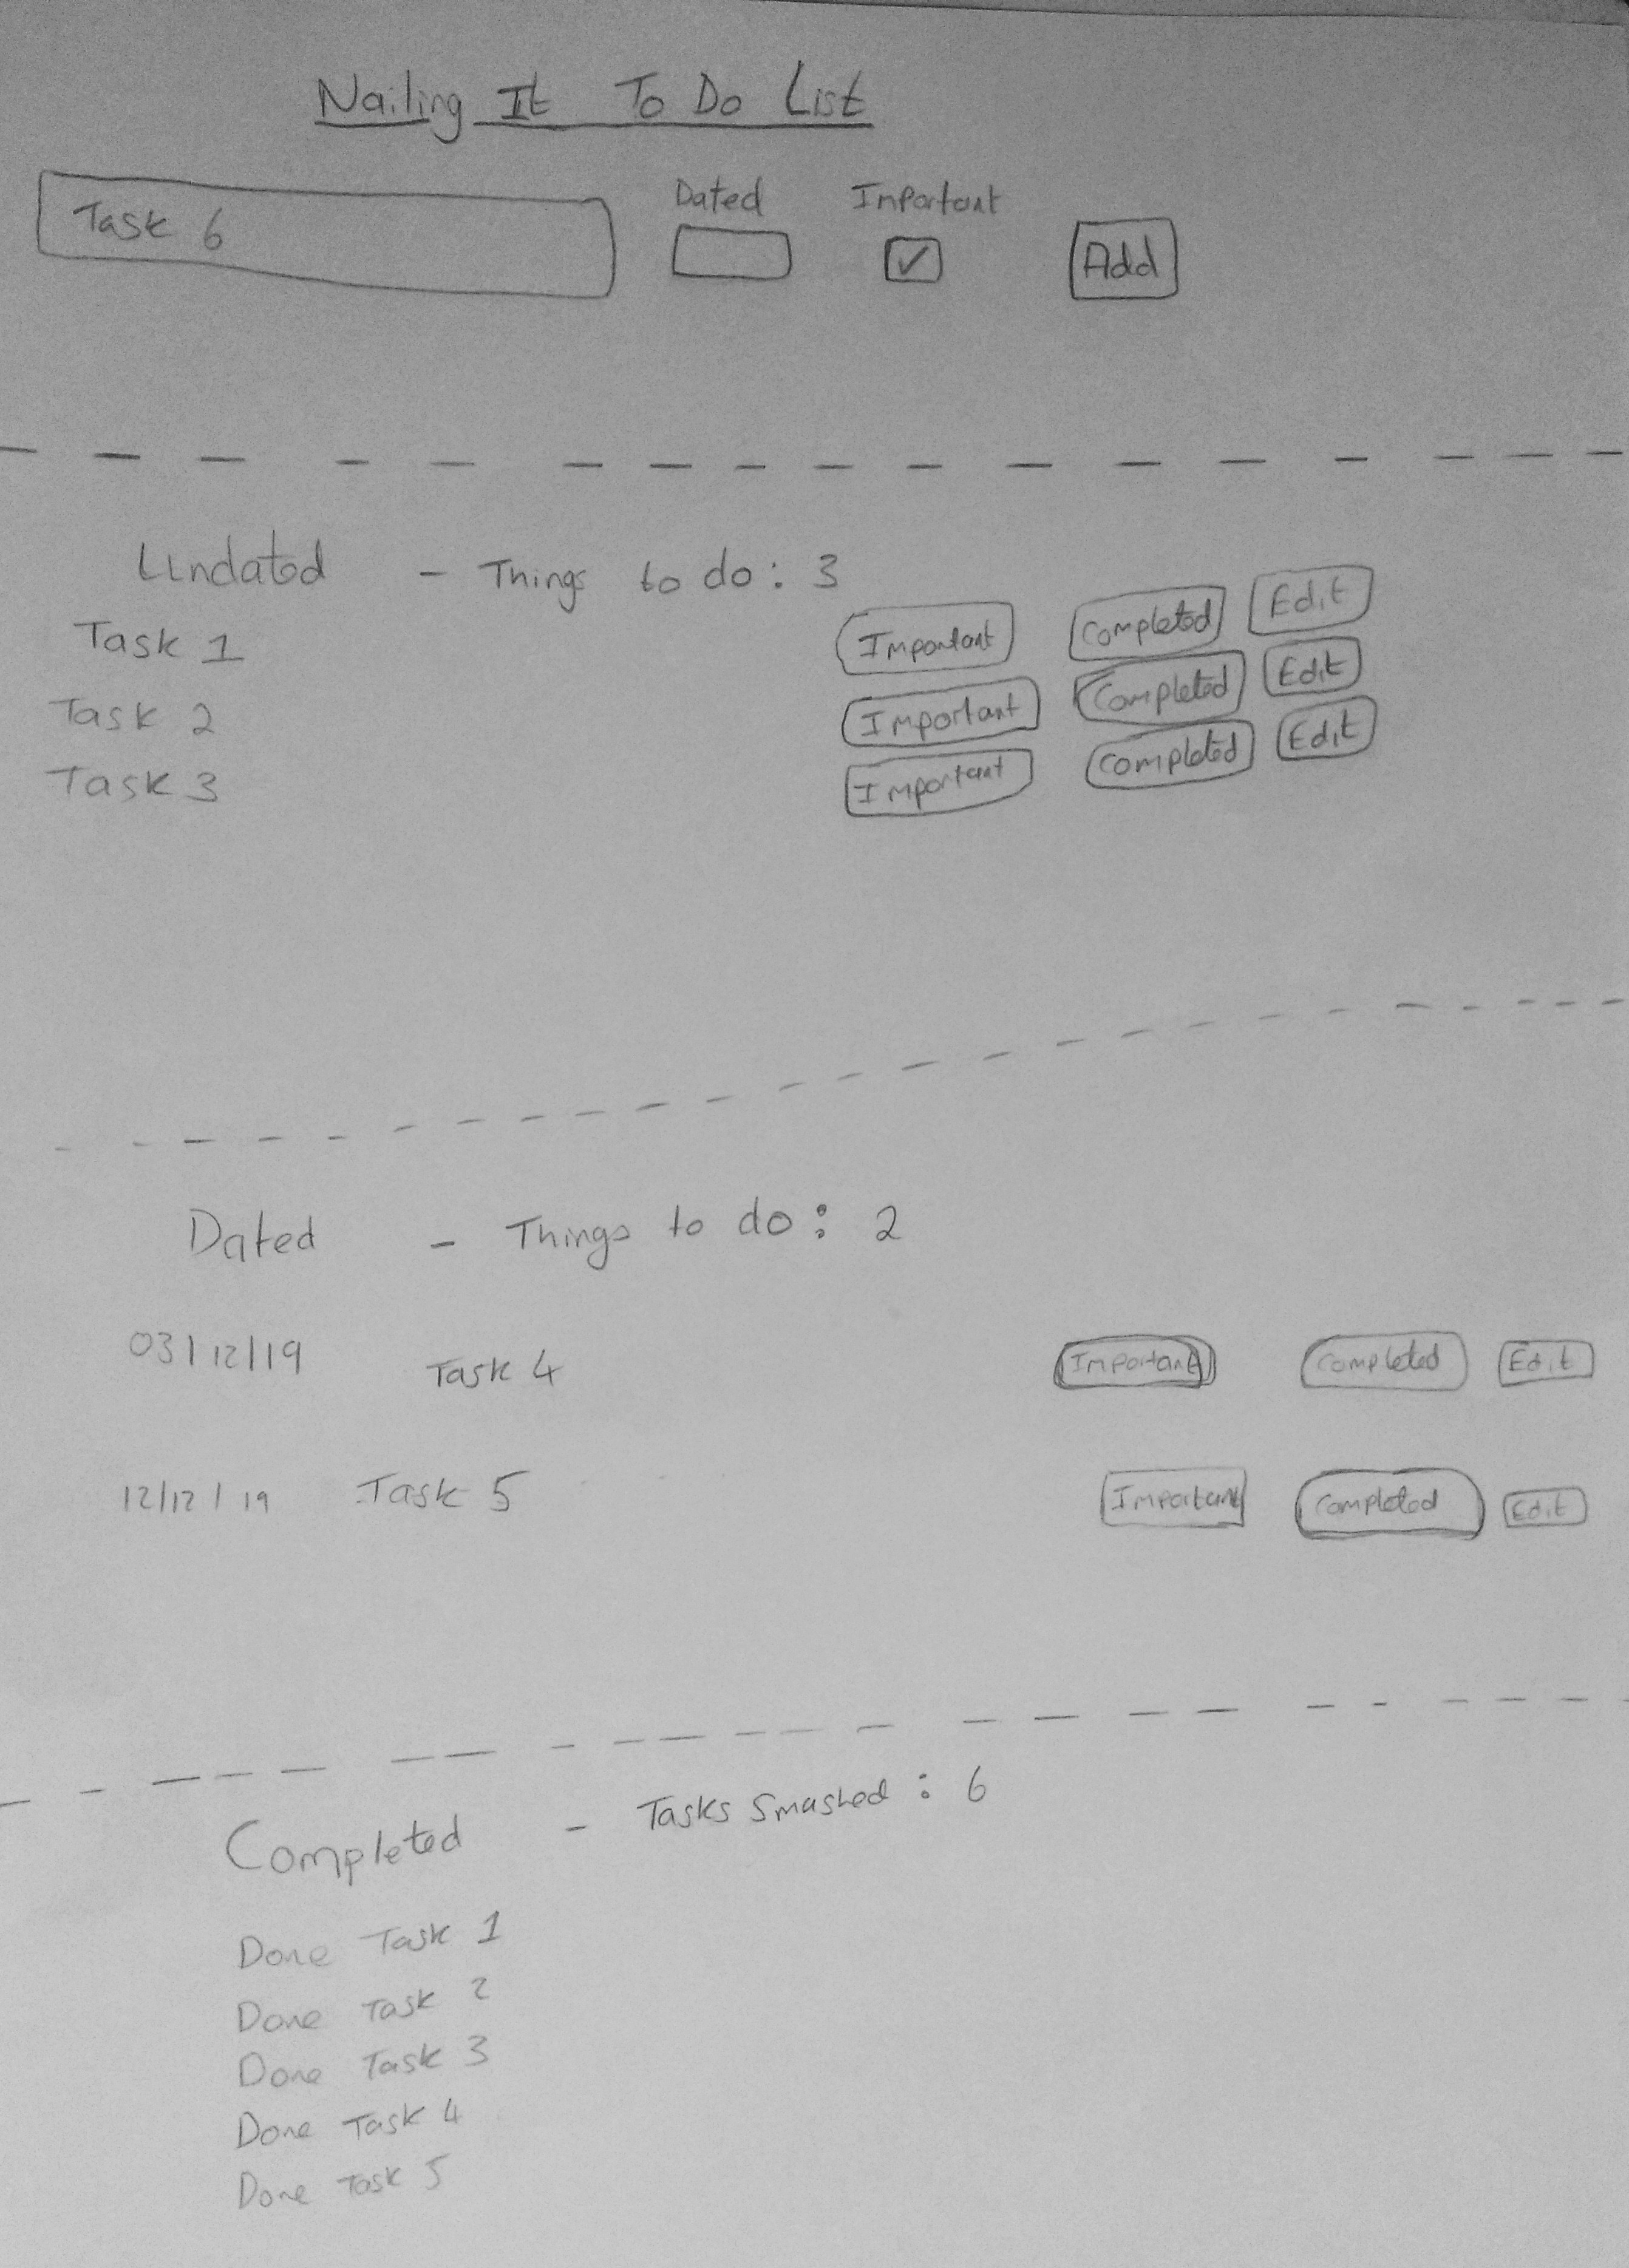 Nailing It To Do List
Dated Important
Task 6 ✓ Add
Undated - Things to do: 3
Task 1 Important Completed Edit
Task 2 Important Completed Edit
Task 3 Important Completed Edit
Dated - Things to do: 2
03/12/19 Task 4 Important Completed Edit
12/12/19 Task 5 Important Completed Edit
Completed - Tasks Smashed: 6
Done Task 1
Done Task 2
Done Task 3
Done Task 4
Done Task 5